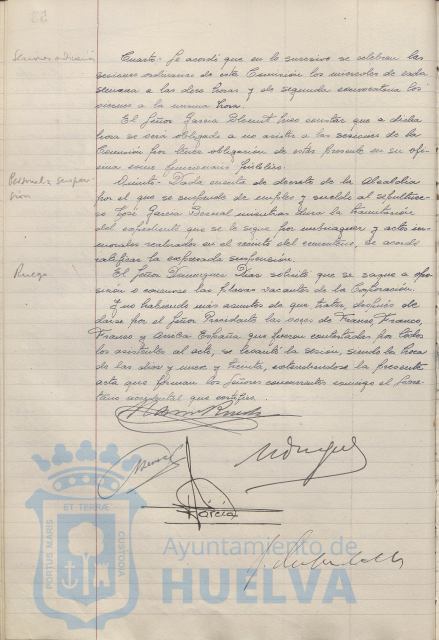 Sesiones ordinarias
Cuarto- Se acordó que en lo sucesivo se celebren las
sesiones ordinarias de esta Comisión los miercoles de cada
semana a las doce horas y de segunda convocatoria los
viernes a la misma hora.
El Señor Garcia hizo constar que a dicha
hora se verá obligado a no asistir a las sesiones de la
Comisión por tener obligación de estar presente en su ofi-
cina como funcionario público.
Personal: suspen-
sión
Quinto- Dada cuenta de decreto de la Alcaldia
por el que se suspende de empleo y sueldo al sepulture-
ro José Garcia Bernal mientras dura la tramitación
del expediente que se le sigue por embriaguez y actos in-
morales realizados en el recinto del cementerio, se acordó
ratificar la expresada suspensión.
Ruego
El Señor Dominguez Dias solicitó que se saque a opo-
sición o concurso las plazas vacantes de la Corporación.
Y no habiendo más asuntos de que tratar, despues de
darse por el Señor Presidente las voces de Franco, Franco,
Franco y Arriba España que fueron contestadas por todos
los asistentes al acto, se levantó la sesión, siendo la hora
de las diez y nueve y treinta, extendiendose la presente
acta que firman los Señores concurrentes conmigo el Secre-
tario accidental que certifico.
Garcia
PORTUS MARIS
ET TERRÆ
CUSTODIA
Ayuntamiento de
HUELVA